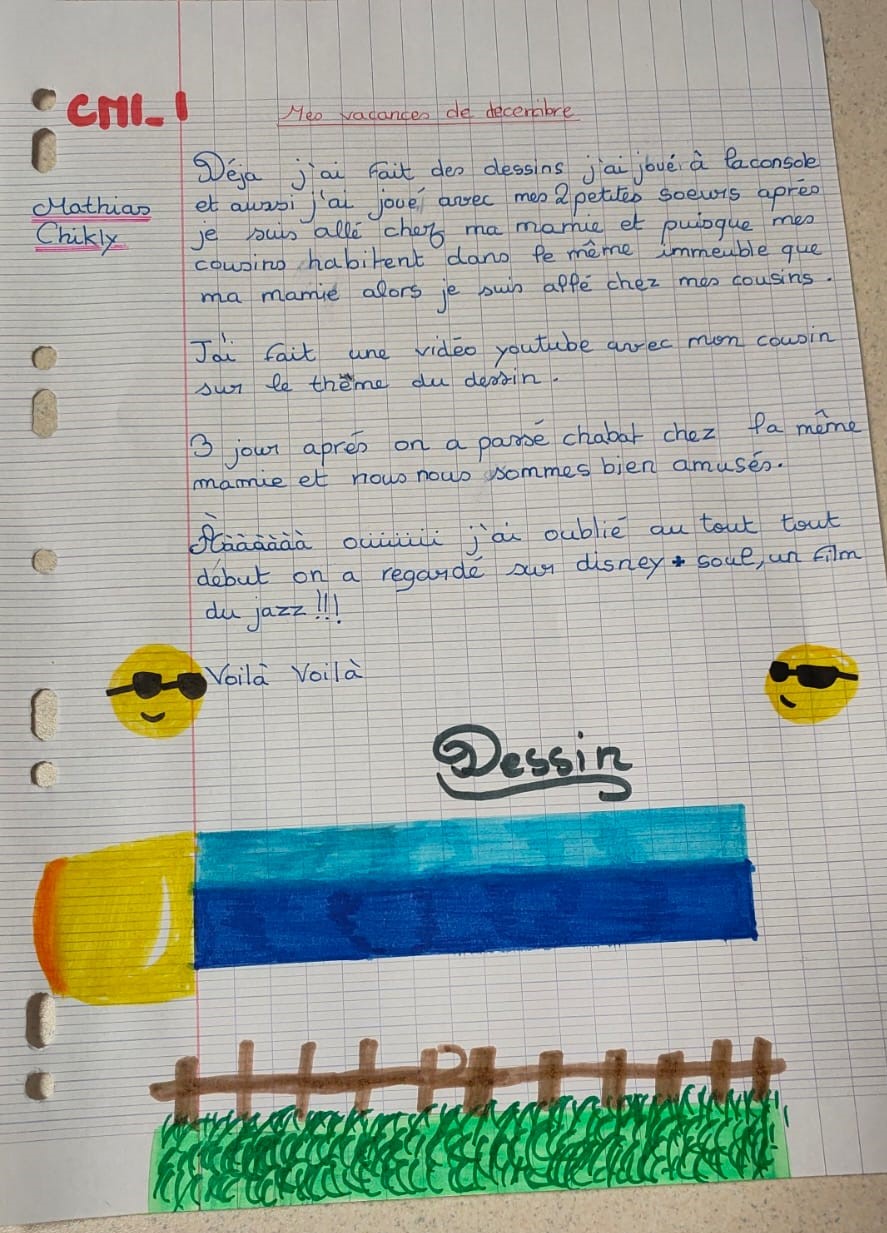 CM1_1
Mes vacances de decembre
Mathias
Chikly
Déja j'ai fait des dessins j'ai joué à la console
et aussi j'ai joué avec mes 2 petites soeurs après
je suis allé chez ma mamie et puisque mes
cousins habitent dans le même immeuble que
ma mamie alors je suis allé chez mes cousins.
J'ai fait une vidéo youtube avec mon cousin
sur le thème du dessin.
3 jour aprés on a passé chabat chez la même
mamie et nous nous sommes bien amusés.
ouiiiiii j'ai oublié au tout tout
début on a regardé sur disney + soul, un film
du jazz !!!
Voilà Voilà
Dessin